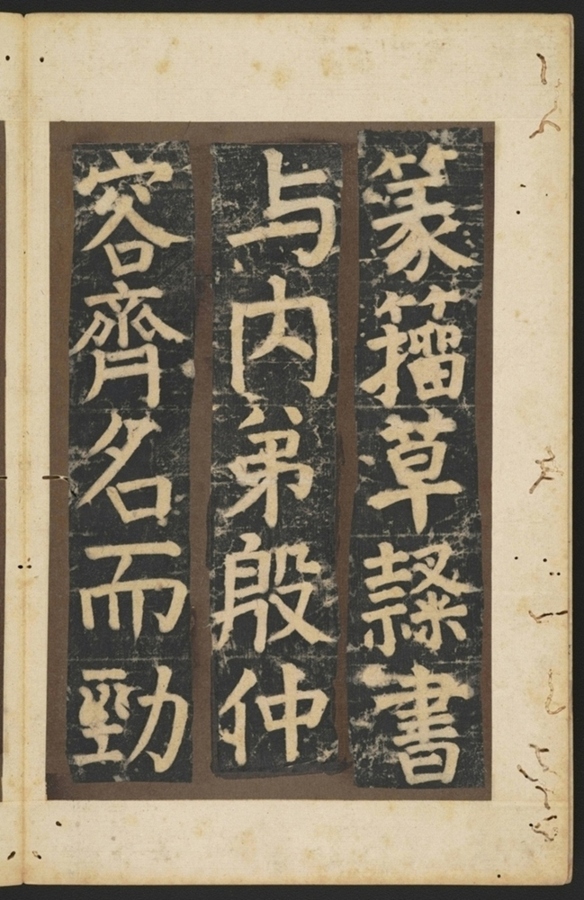 篆籀草隸書
与内弟殷仲
容齊名而勁